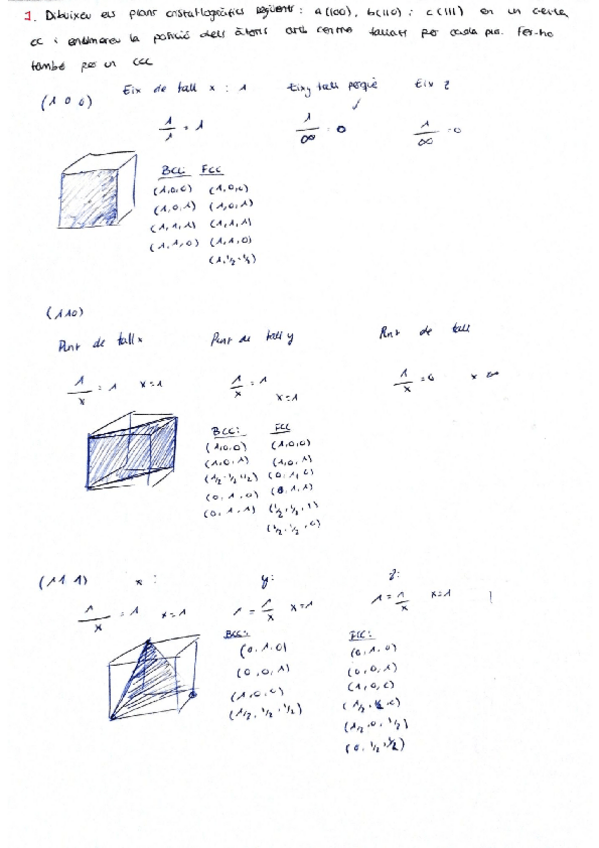 1. Dibuixeu els plans cristal·logràfics següents: a(100), b(110) i c(111) en un
cc i enumereu la posició dels àtoms amb centre tallats per cada pla. Fer-ho
també per un CCC
(1 0 0) Eix de tall x: 1 Eix y tall perquè Eix z
1/1 = 1 1/∞ = 0 1/∞ = 0
BCC: FCC
(1,0,0) (1,0,0)
(1,0,1) (1,0,1)
(1,1,1) (1,1,1)
(1,1,0) (1,1,0)
(1,1/2,1/2)
(110)
Punt de tall x Punt de tall y Punt de tall
1/x = 1 x=1 1/x = 1 x=1 1/x = 0 x ∞
BCC: FCC
(1,0,0) (1,0,0)
(1,0,1) (1,0,1)
(1/2,1/2,1/2) (0,1,0)
(0,1,0) (0,1,1)
(0,1,1) (1/2,1/2,1)
(1/2,1/2,0)
(111) x: y: z:
1/x = 1 x=1 1 = 1/x x=1 1 = 1/x x=1
BCC: FCC:
(0,1,0) (0,1,0)
(0,0,1) (0,0,1)
(1,0,0) (1,0,0)
(1/2,1/2,1/2) (1/2, ,0)
(1/2,0,1/2)
(0,1/2,1/2)